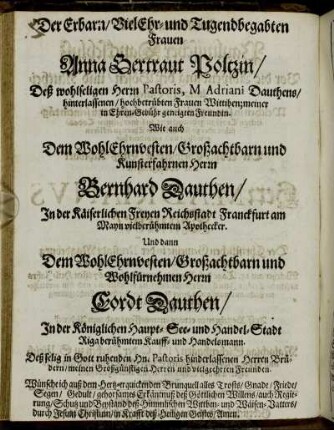 Der Erbarn/ VielEhr- und Tugendbegabten
Frauen
Anna Gertraut Poltzin/
Deß wohlseligen Herrn Pastoris, M Adriani Dauthens/
hinterlassenen/ hochbetrübten Frauen Wittiben; meiner
in Ehren-Gebühr geneigten Freundin.
Wie auch
Dem WohlEhrnvesten/ Großachtbarn und
Kunsterfahrnen Herrn
Bernhard Dauthen/
In der Käiserlichen Freyen Reichsstadt Franckfurt am
Mayn vielberühmtem Apothecker.
Und dann
Dem WohlEhrnvesten/ Großachtbarn und
Wohlfürnehmen Herrn
Cordt Dauthen/
In der Königlichen Haupt- See- und Handel-Stadt
Riga berühmtem Kauff- und Handelsmann.
Deß selig in Gott ruhenden Hn. Pastoris hinderlassenen Herren Brüdern/
meinen Großgünstigen Herren und vielgeehrten Freunden.
Wünsche ich auß dem Hertz-erquickenden Brunquell alles Trosts/ Gnade/ Friede/
Segen/ Gedult/ gehorsames Erkäntnuß deß Göttlichen Willens/ auch Regierung/
Schutz und Beystand deß Himmlischen Wittben- und Wäisen-Vatters/
durch Jesum Christum/ in Krafft deß Heiligen Geistes/ Amen.